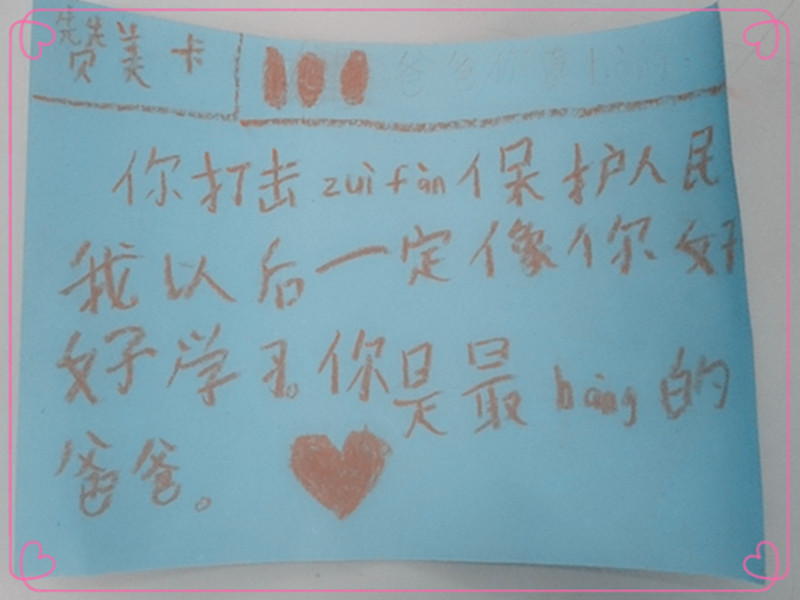 赞美卡
爸爸你真
你打击zuì fàn保护人民
我以后一定像你好
好学习。你是最bàng的
爸爸。